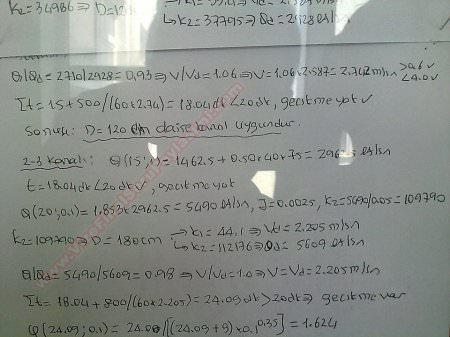 k₂=34986 ⇒ D=120
k₂=37795 ⇒ Qd=2928 lt/sn
Q/Qd=2710/2928=0.93 ⇒ V/Vd=1.06 ⇒ V=1.06×2.587=2.742 m/sn >0.6 <4.0
Σt=15+500/(60×2.74)=18.04dk<20dk, gecikme yok ✓
Sonuç: D=120 cm daire kanal uygundur.
2-3 kanalı: Q(15,1)=1462.5+0.50×40×75=2962.5 lt/sn
t=18.04dk<20dk✓, gecikme yok
Q(20;0.1)=1.853×2962.5=5490 lt/sn, J=0.0025, k₂=5490/0.05=109790
k₂=109790 ⇒ D=180cm k₁=44.1 ⇒ Vd=2.205 m/sn
k₂=112176 ⇒ Qd=5609 lt/sn
Q/Qd=5490/5609=0.98 ⇒ V/Vd=1.0 ⇒ V=Vd=2.205 m/sn
Σt=18.04+800/(60×2.205)=24.09 dk>20dk ⇒ gecikme var
φ(24.09;0.1)=24.09/[(24.09+9)×0.1^0.35]=1.624